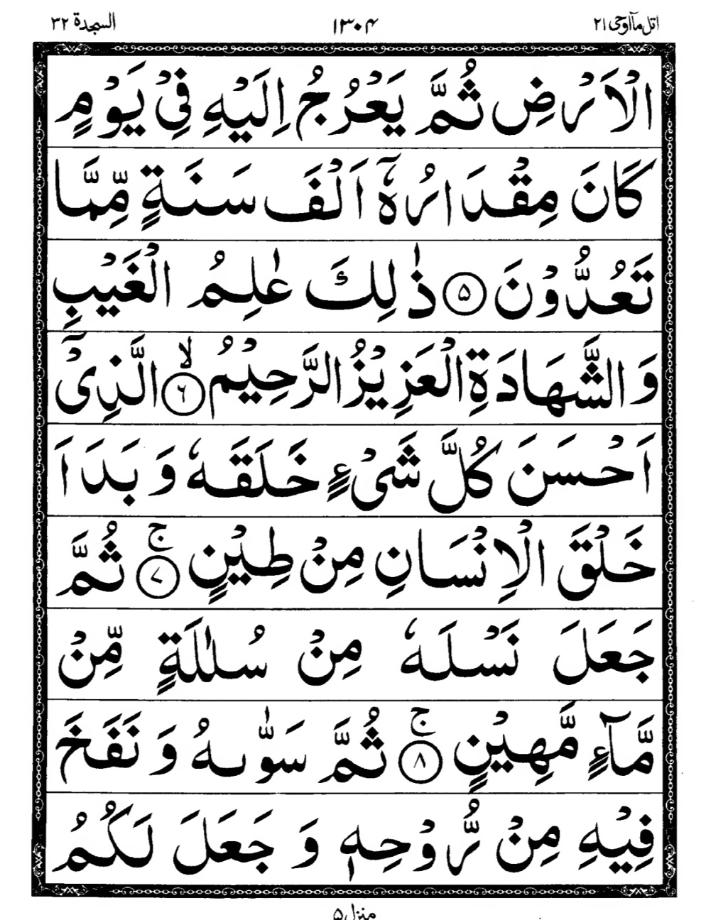 اتل ماۤ اوحی ۲۱ ۱۳۰۴ السجدة ۳۲
الْاَرْضِ ثُمَّ يَعْرُجُ اِلَيْهِ فِيْ يَوْمٍ
كَانَ مِقْدَارُهٗۤ اَلْفَ سَنَةٍ مِّمَّا
تَعُدُّوْنَ ۝۵ ذٰلِكَ عٰلِمُ الْغَيْبِ
وَالشَّهَادَةِ الْعَزِيْزُ الرَّحِيْمُ ۝۶ۙ الَّذِيْۤ
اَحْسَنَ كُلَّ شَیْءٍ خَلَقَهٗ وَ بَدَاَ
خَلْقَ الْاِنْسَانِ مِنْ طِيْنٍ ۝۷ۚ ثُمَّ
جَعَلَ نَسْلَهٗ مِنْ سُلٰلَةٍ مِّنْ
مَّآءٍ مَّهِيْنٍ ۝۸ۚ ثُمَّ سَوّٰىهُ وَ نَفَخَ
فِيْهِ مِنْ رُّوْحِهٖ وَ جَعَلَ لَكُمُ
منزل ۵